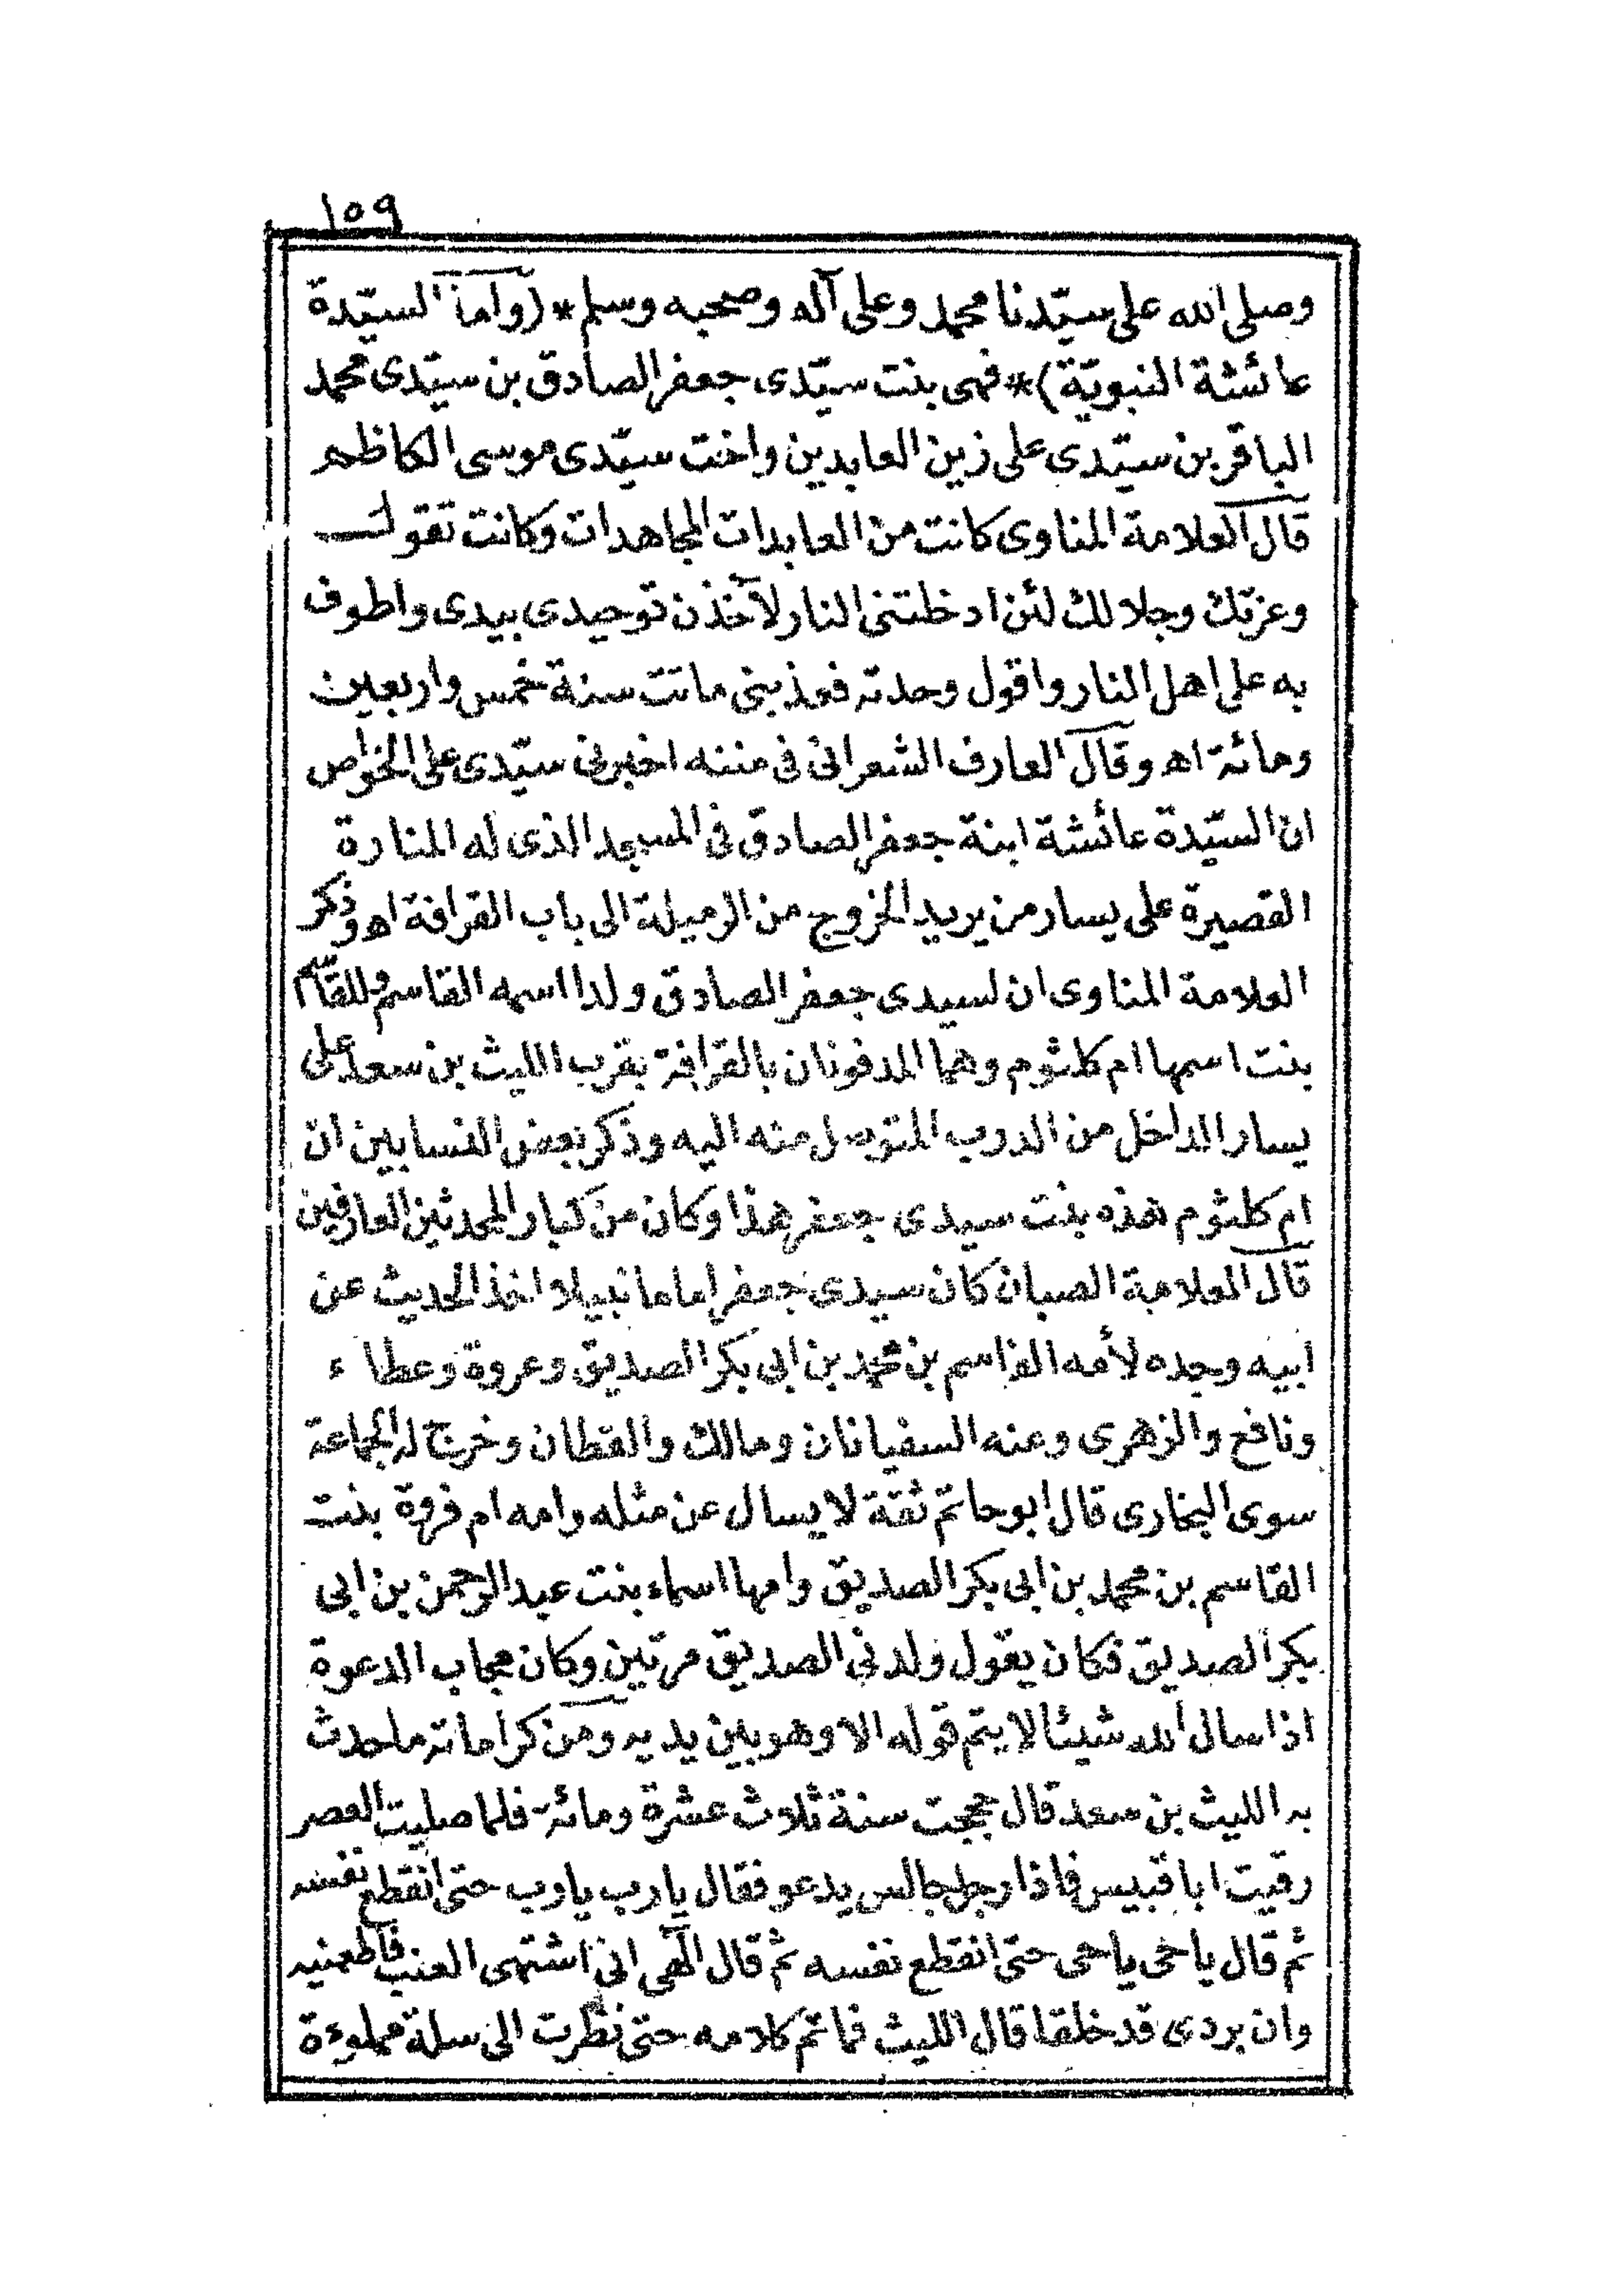 ١٥٩
وصلى الله على سيّدنا محمد وعلى آله وصحبه وسلم * (واما السيّدة
عائشة النبويّة) * فهى بنت سيّدى جعفر الصادق بن سيّدى محمد
الباقر بن سيّدى على زين العابدين واخت سيّدى موسى الكاظم
قال العلامة المناوى كانت من العابدات المجاهدات وكانت تقول
وعزتك وجلالك لئن ادخلتنى النار لآخذن توحيدى بيدى واطوف
به على اهل النار واقول وحدته فعذبنى ماتت سنة خمس واربعين
ومائة اه وقال العارف الشعرانى فى مننه اخبرنى سيّدى على الخواص
ان السيّدة عائشة ابنة جعفر الصادق فى المسجد الذى له المنارة
القصيرة على يسار من يريد الخروج من الرميلة الى باب القرافة اه وذكر
العلامة المناوى ان لسيدى جعفر الصادق ولدا اسمه القاسم وللقاسم
بنت اسمها ام كلثوم وهما المدفونان بالقرافة بقرب الليث بن سعد على
يسار الداخل من الدرب المتوصل منه اليه وذكر بعض النسابين ان
ام كلثوم هذه بنت سيدى جعفر هذا وكان من كبار المحدثين العارفين
قال العلامة الصبان كان سيدى جعفر اماما نبيلا اخذ الحديث عن
ابيه وجده لأمه القاسم بن محمد بن ابى بكر الصديق وعروة وعطاء
ونافع والزهرى وعنه السفيانان ومالك والقطان وخرج له الجماعة
سوى البخارى قال ابو حاتم ثقة لا يسال عن مثله وامه ام فروة بنت
القاسم بن محمد بن ابى بكر الصديق وامها اسماء بنت عبد الرحمن بن ابى
بكر الصديق فكان يقول ولدنى الصديق مرتين وكان مجاب الدعوة
اذا سال الله شيئا لا يتم قوله الا وهو بين يديه ومن كراماته ما حدث
به الليث بن سعد قال حججت سنة ثلاث عشرة ومائة فلما صليت العصر
رقيت ابا قبيس فاذا رجل جالس يدعو فقال يا رب يا رب حتى انقطع نفسه
ثم قال يا حى يا حى حتى انقطع نفسه ثم قال الهى انى اشتهى العنب فاطعمنيه
وان بردى قد خلقا قال الليث فما تم كلامه حتى نظرت الى سلة مملوءة